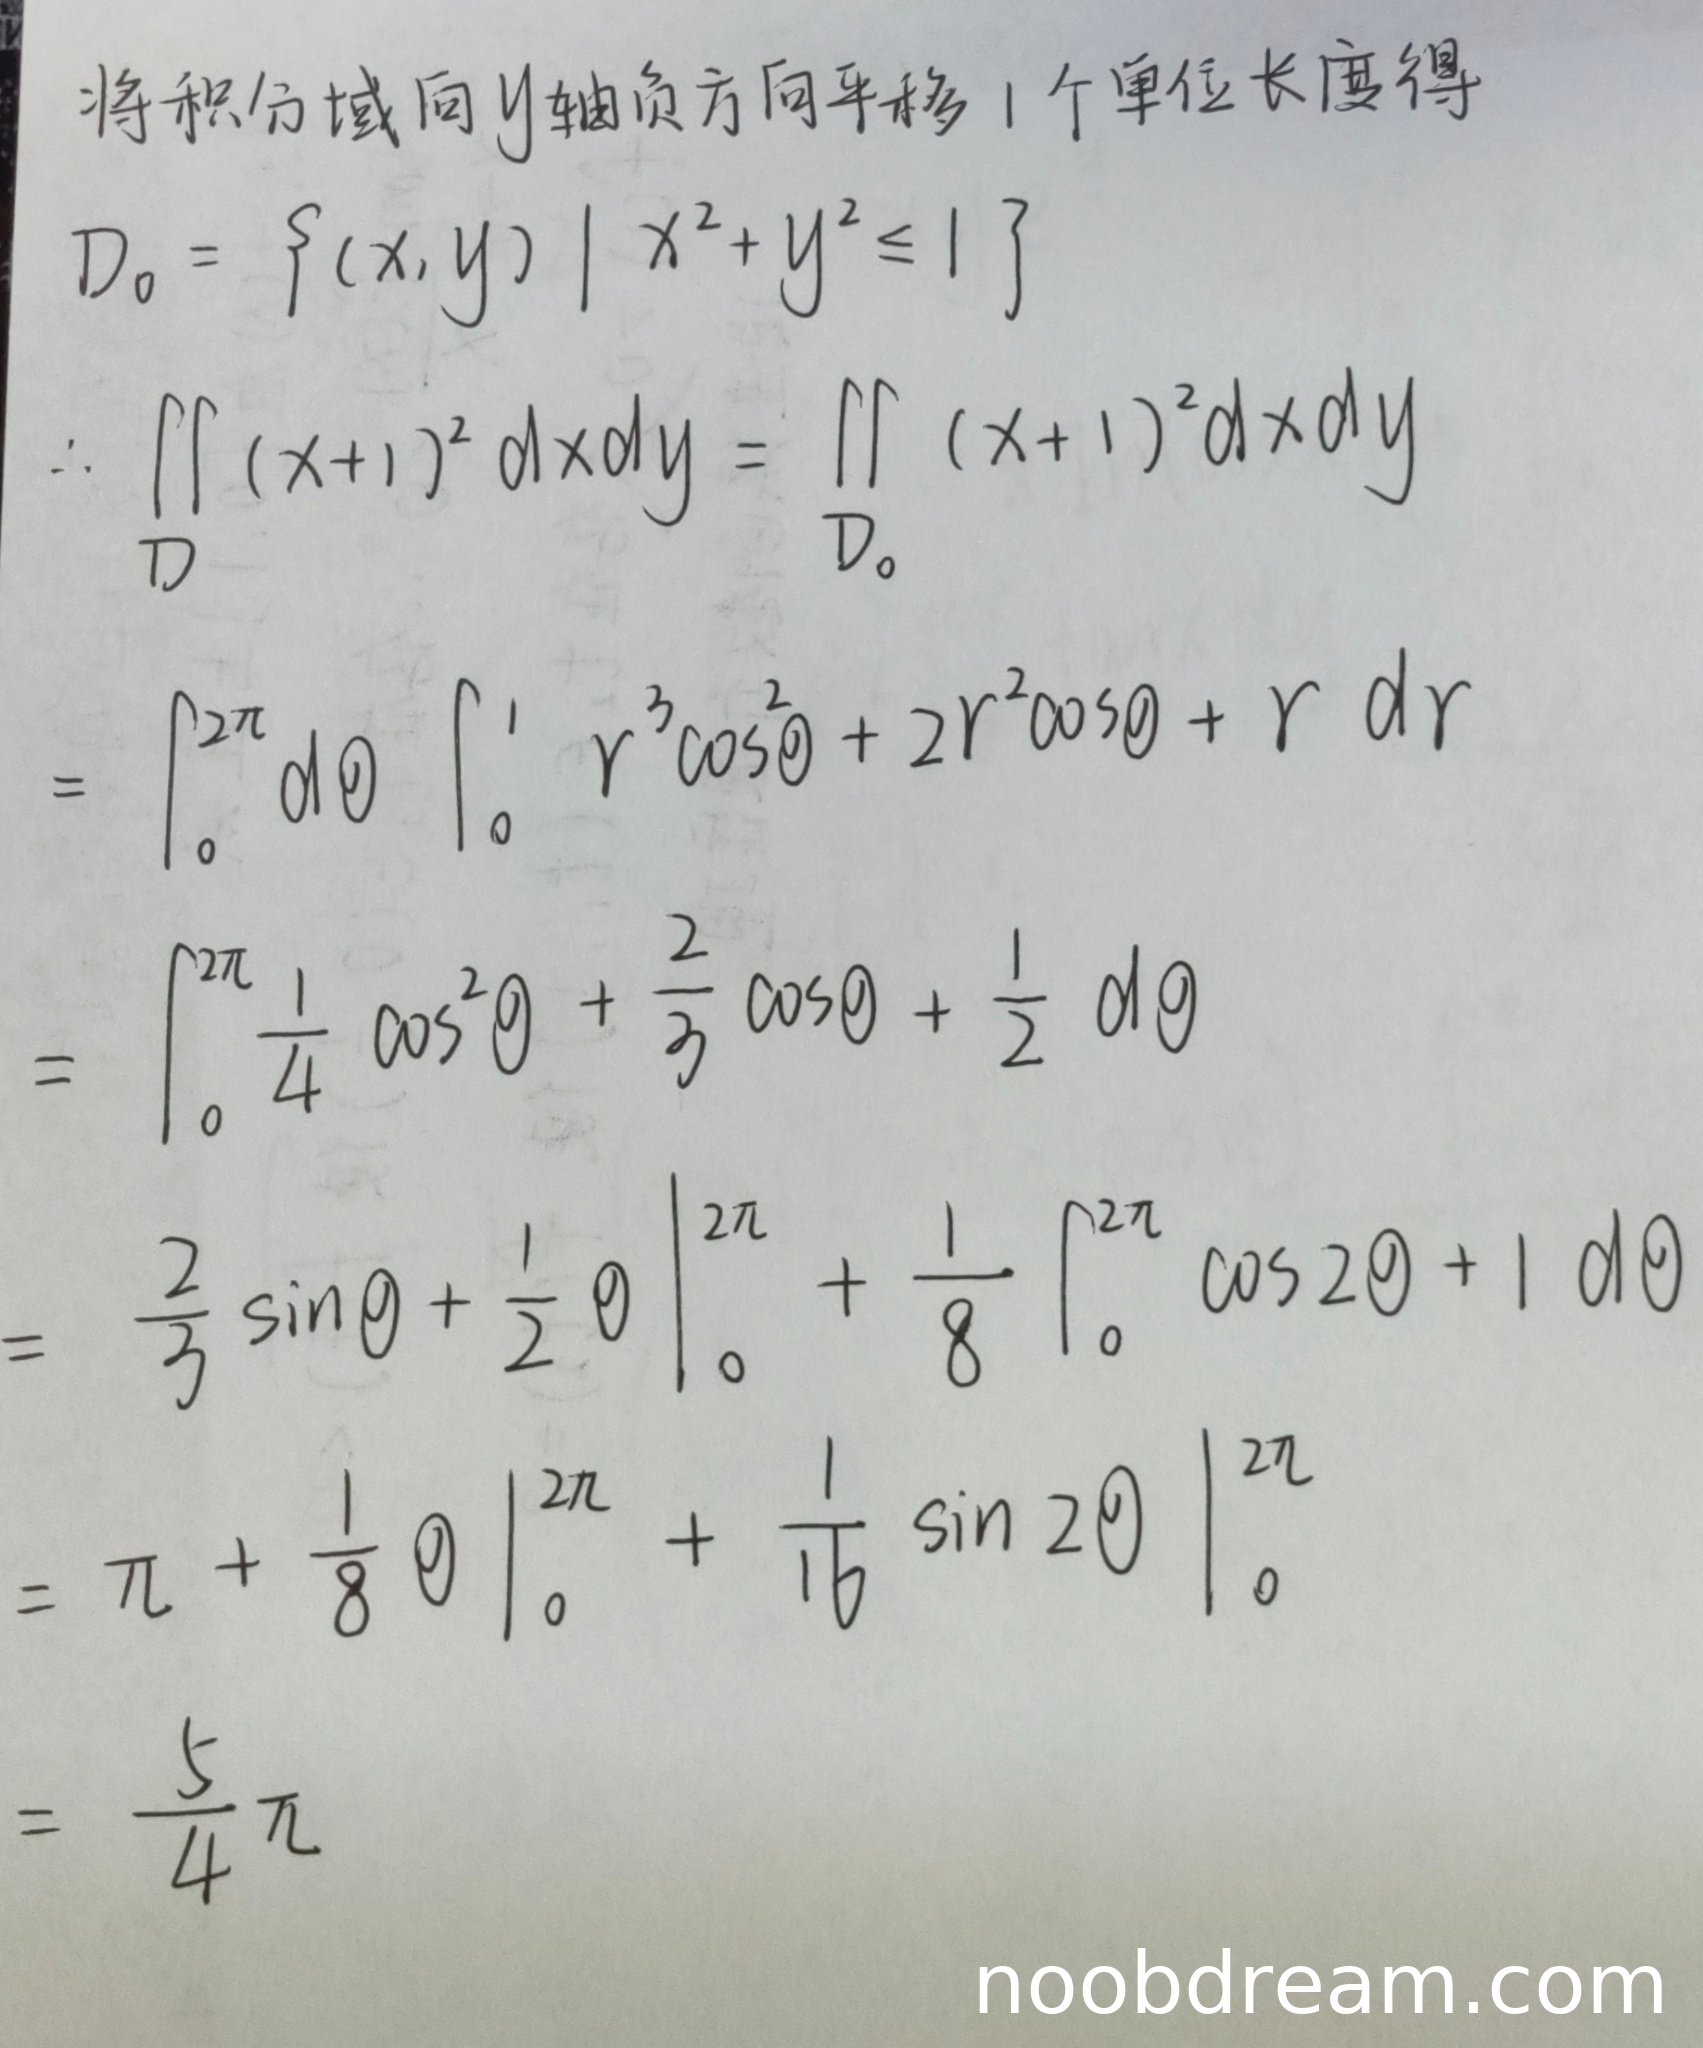 将积分域向y轴负方向平移1个单位长度得
D₀ = {(x,y) | x² + y² ≤ 1}
∴ ∬_D (x+1)² dxdy = ∬_{D₀} (x+1)² dxdy
= ∫₀^{2π} dθ ∫₀¹ r³cos²θ + 2r²cosθ + r dr
= ∫₀^{2π} 1/4 cos²θ + 2/3 cosθ + 1/2 dθ
= 2/3 sinθ + 1/2 θ |₀^{2π} + 1/8 ∫₀^{2π} cos2θ + 1 dθ
= π + 1/8 θ |₀^{2π} + 1/16 sin2θ |₀^{2π}
= 5/4 π
noobdream.com